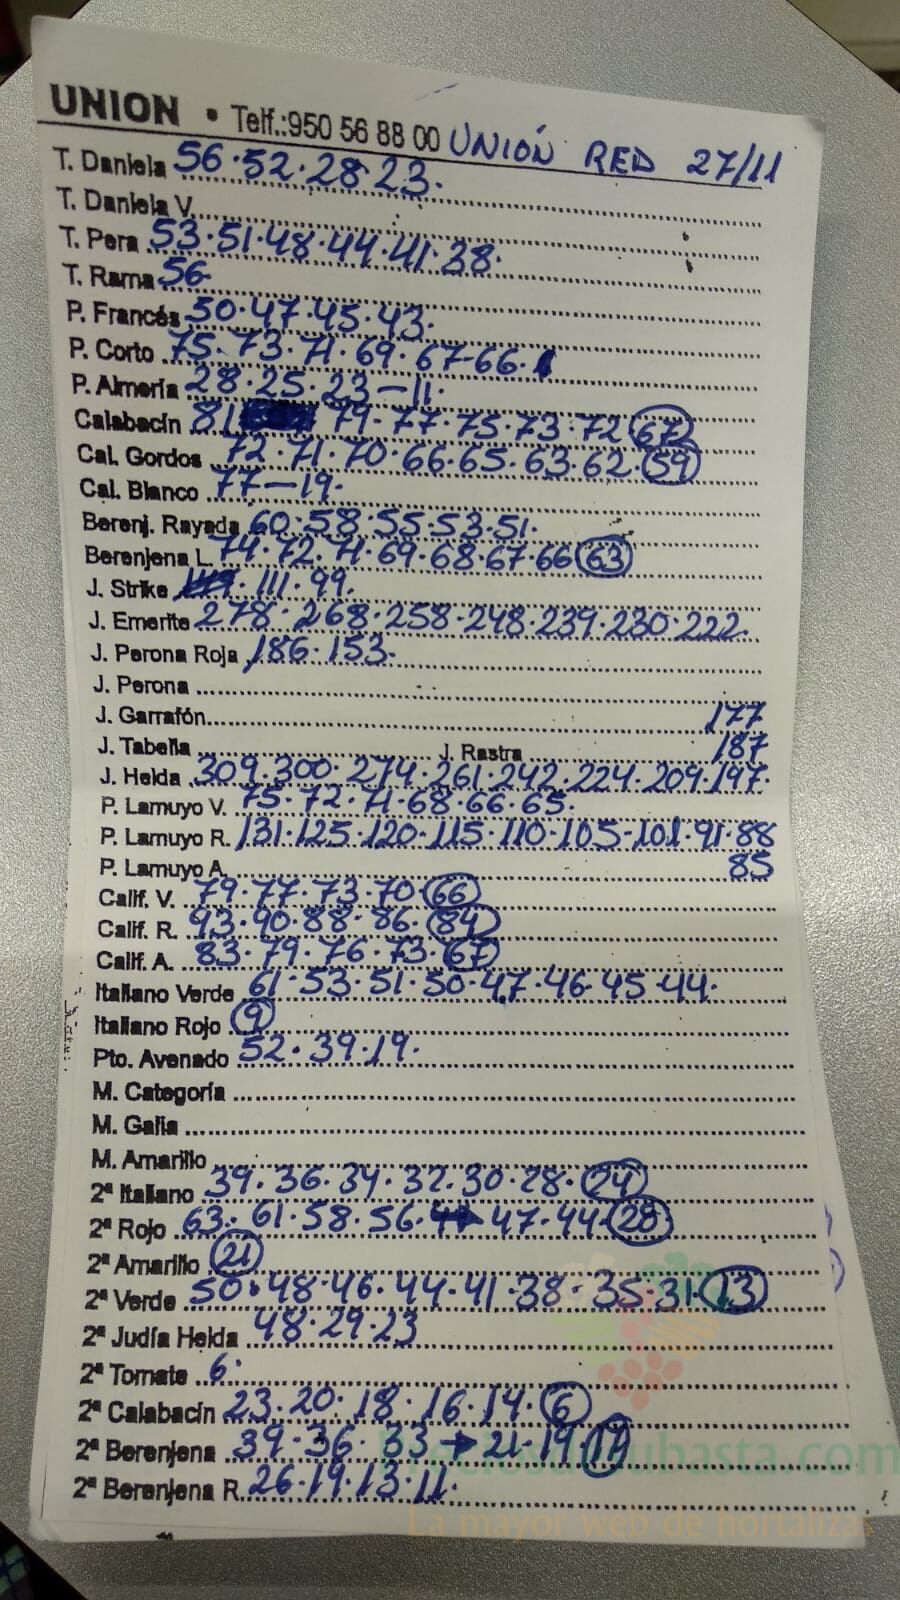 UNION • Telf.:950 56 88 00 UNIÓN RED 27/11
T. Daniela 56·52·28·23·
T. Daniela V.
T. Pera 53·51·48·44·41·38·
T. Rama 56
P. Francés 50·47·45·43·
P. Corto 75·73·71·69·67-66·
P. Almería 28·25·23-11·
Calabacín 81 79-77·75·73·72 67
Cal. Gordos 72·71·70·66·65·63·62·59
Cal. Blanco 77-19·
Berenj. Rayada 60·58·55·53·51·
Berenjena L. 74·72·71·69·68·67·66 63
J. Strike 111·99·
J. Emerite 278·268·258·248·239·230·222·
J. Perona Roja 186·153·
J. Perona
J. Garrafón 177
J. Tabella J. Rastra 187
J. Helda 309·300·274·261·242·224·209·197·
P. Lamuyo V. 75·72·71·68·66·65·
P. Lamuyo R. 131·125·120·115·110·105-101·91·88
P. Lamuyo A. 85
Calif. V. 79·77·73·70·66
Calif. R. 93·90·88·86·84
Calif. A. 83·79·76·73·67
Italiano Verde 61·53·51·50·47·46·45·44·
Italiano Rojo 9
Pto. Avenado 52·39·19·
M. Categoría
M. Galia
M. Amarillo
2ª Italiano 39·36·34·32·30·28·24
2ª Rojo 63·61·58·56· 47·44·28
2ª Amarillo 21
2ª Verde 50·48·46·44·41·38·35·31·13
2ª Judía Helda 48·29·23
2ª Tomate 6·
2ª Calabacín 23·20·18·16·14·6
2ª Berenjena 39·36·33→21·19·17
2ª Berenjena R. 26·19·13·11·
preciosdesubasta.com
La mayor web de hortalizas